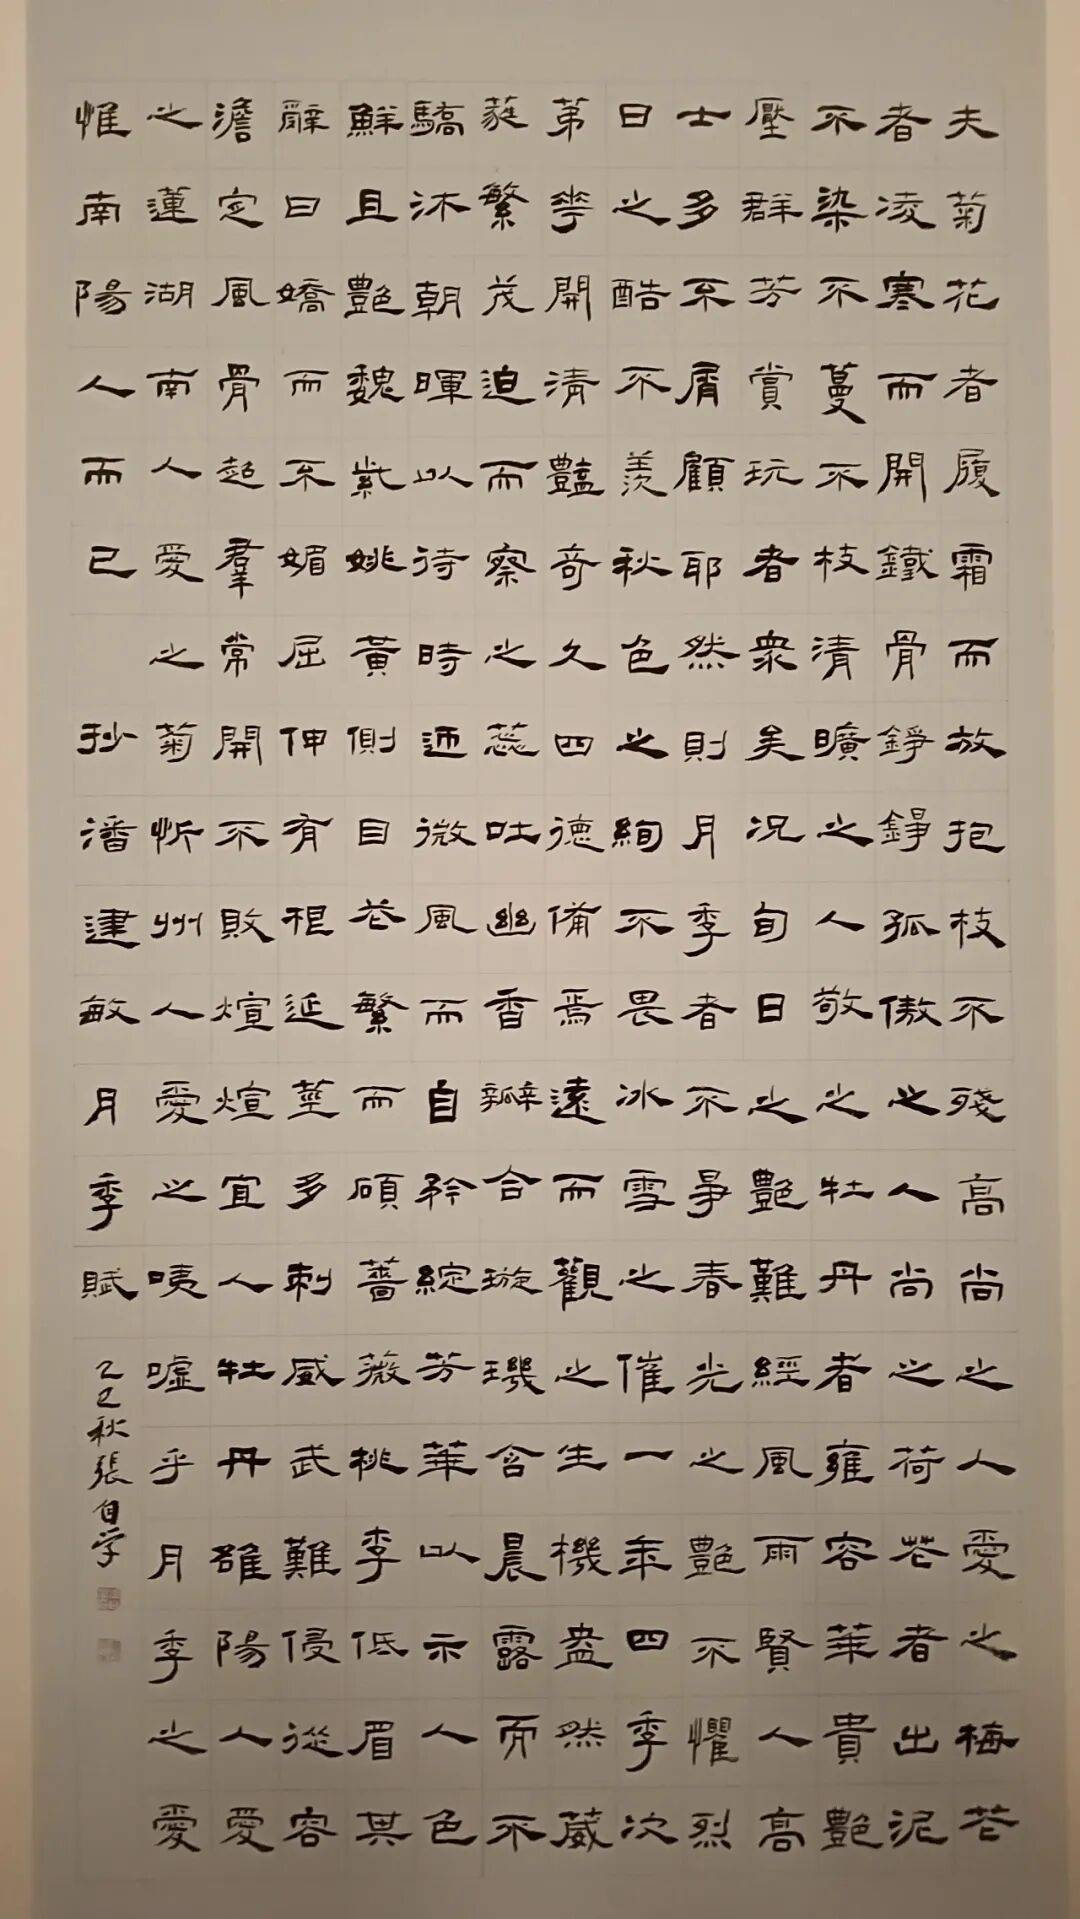 夫菊花者履霜而放抱枝不殘高尚之人愛之梅芲
者凌寒而開鐵骨錚錚孤傲之人尚之荷芲者出泥
不染不蔓不枝清曠之人敬之牡丹者雍容華貴艷
壓群芳賞玩者衆矣況旬日之艷難經風雨賢人高
士多不屑顧耶然則月季者不爭春光之艷不懼烈
日之酷不羨秋色之絢不畏冰雪之催一年四季次
第花開清豔奇久四德備焉遠而觀之生機盎然葳
蕤繁茂迫而察之蕊吐幽香瓣合璇璣含晨露而不
驕沐朝暉以待時迊微風而自矜綻芳華以示人色
鮮且艷魏紫姚黃側目芲繁而碩薔薇桃李低眉其
辭曰嬌而不媚屈伸有柤延莖多刺威武難侵從容
澹定風骨超羣常開不敗煊煊宜人牡丹雒陽人愛
之蓮湖南人愛之菊忻州人愛之咦噓乎月季之愛
惟南陽人而已 抄潘建敏月季賦 乙巳秋張自学